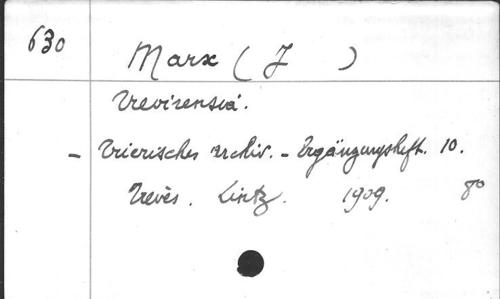 630
Marx (J )
Trevirensia.
- Trierisches Archiv. - Ergänzungsheft. 10.
Trèves. Lintz. 1909. 8º